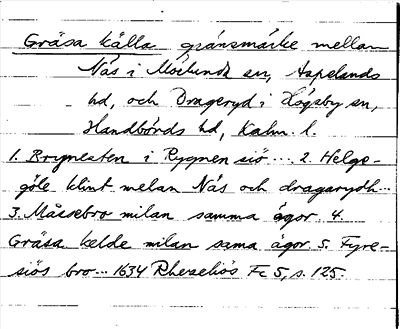 Gräsa källa gränsmärke mellan
Näs i Mörlunda sn, Aspelands
hd, och Drageryd i Högsby sn,
Handbörds hd, Kalm. l.
1. Brynesten i Rygnen siö .... 2. Helge-
göle klint melan Näs och dragarydh...
3. Måssebro milan samma ägor. 4.
Gräsa kelde milan sama ägor 5. Fyre-
siös bro... 1634 Rhezeliös Fc 5, s. 125.